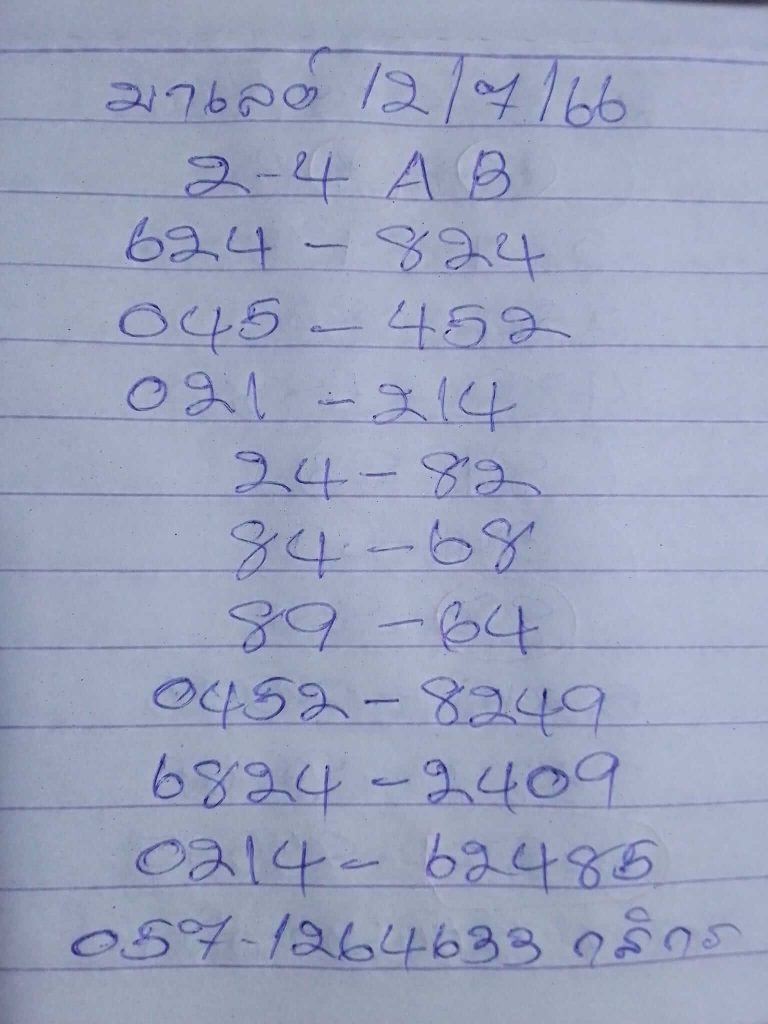 มาเลย์ 12/7/66
2-4 A B
624 - 824
045 - 452
021 - 214
24 - 82
84 - 68
89 - 64
0452 - 8249
6824 - 2409
0214 - 62485
057-1264633 กสิกร